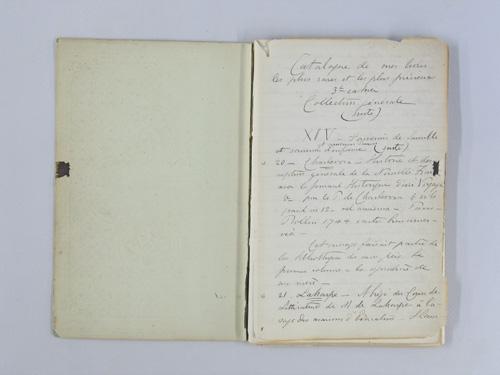 Catalogue de mes livres
les plus rares et les plus précieux
3me cahier
Collection générale
(suite)
XIV – Souvenir de famille
et souvenir d'enfance (suite)
20 – Charlevoix – Histoire et des-
cription générale de la Nouvelle France
avec le journal Historique d'un Voyage
& par le P. de Charlevoix 6 vols
grand in 12
Rollin 1744 carte
Cet ouvrage faisait partie de
la bibliothèque de mon père. Le
premier volume a la signature de
ma mère –
21 Laharpe – Abrégé du Cours de
Littérature de M. de Laharpe à l'u-
sage des maisons d'éducation –